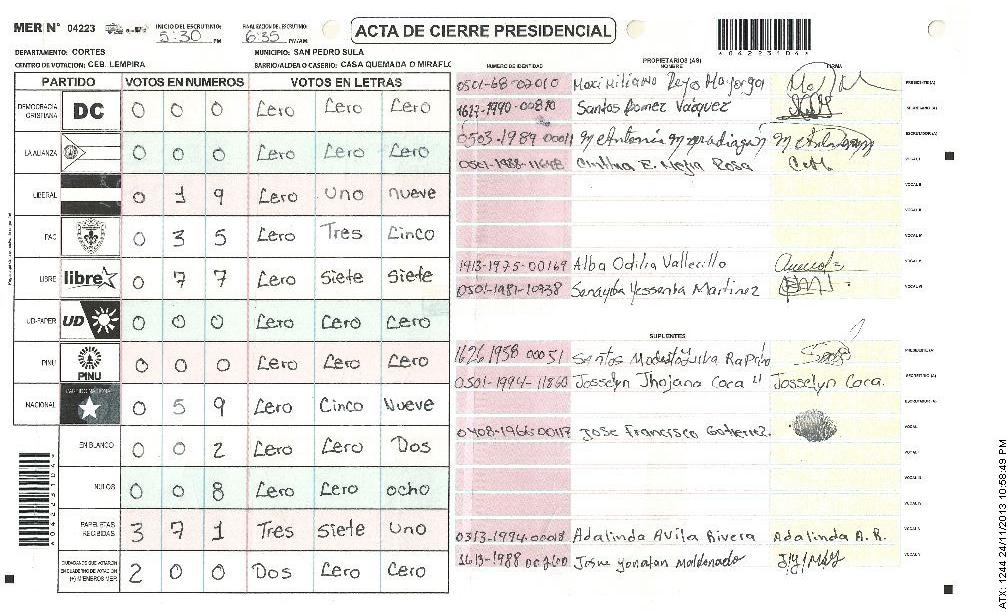 MER N° 04223
INICIO DEL ESCRUTINIO: 5:30 PM
FINALIZACION DEL ESCRUTINIO: 6:35 AM/PM
ACTA DE CIERRE PRESIDENCIAL
DEPARTAMENTO: CORTES
MUNICIPIO: SAN PEDRO SULA
CENTRO DE VOTACION: CEB. LEMPIRA
BARRIO/ALDEA O CASERIO: CASA QUEMADA O MIRAFLO
PARTIDO VOTOS EN NUMEROS VOTOS EN LETRAS
DEMOCRACIA CRISTIANA DC 0 0 0 Cero Cero Cero
LA ALIANZA 0 0 0 Cero Cero Cero
LIBERAL 0 1 9 Cero Uno nueve
PAC 0 3 5 Cero Tres Cinco
LIBRE libre 0 7 7 Cero Siete Siete
UD-FAPER UD 0 0 0 Cero Cero Cero
PINU PINU 0 0 0 Cero Cero Cero
NACIONAL PARTIDO NACIONAL 0 5 9 Cero Cinco Nueve
EN BLANCO 0 0 2 Cero Cero Dos
NULOS 0 0 8 Cero Cero ocho
PAPELETAS RECIBIDAS 3 7 1 Tres Siete Uno
CIUDADANOS QUE VOTARON EN CUADERNO DE VOTACION (+) MIEMBROS MER 2 0 0 Dos Cero Cero
04223104
PROPIETARIOS (AS)
NUMERO DE IDENTIDAD NOMBRE FIRMA
0501-68-02010 Maximiliano Reyes Mayorga PRESIDENTE(A)
1627-1990-00810 Santos Gomez Vasquez SECRETARIO (A)
0503-1989 00011 ESCRUTADOR(A)
0501-1988-11648 Cinthia E. Mejia Rosa VOCAL I
VOCAL II
VOCAL III
VOCAL IV
1913-1975-00169 Alba Odilia Vallecillo VOCAL V
0501-1981-10938 Sanayba Yessenia Martinez VOCAL VI
SUPLENTES
1626 1958 00051 Santos PRESIDENTE(A)
0501-1994-11860 Josselyn Jhojana Coca Josselyn Coca. SECRETARIO (A)
ESCRUTADOR (A)
0408-1966-00117 Jose Francisco Gutierrez. VOCAL
VOCAL I
VOCAL III
VOCAL IV
0313-1994-00018 Adalinda Avila Rivera Adalinda A. R. VOCAL V
1613-1988 00260 Josue Yonatan Maldonado
ATX: 1244 24/11/2013 10:58:49 PM